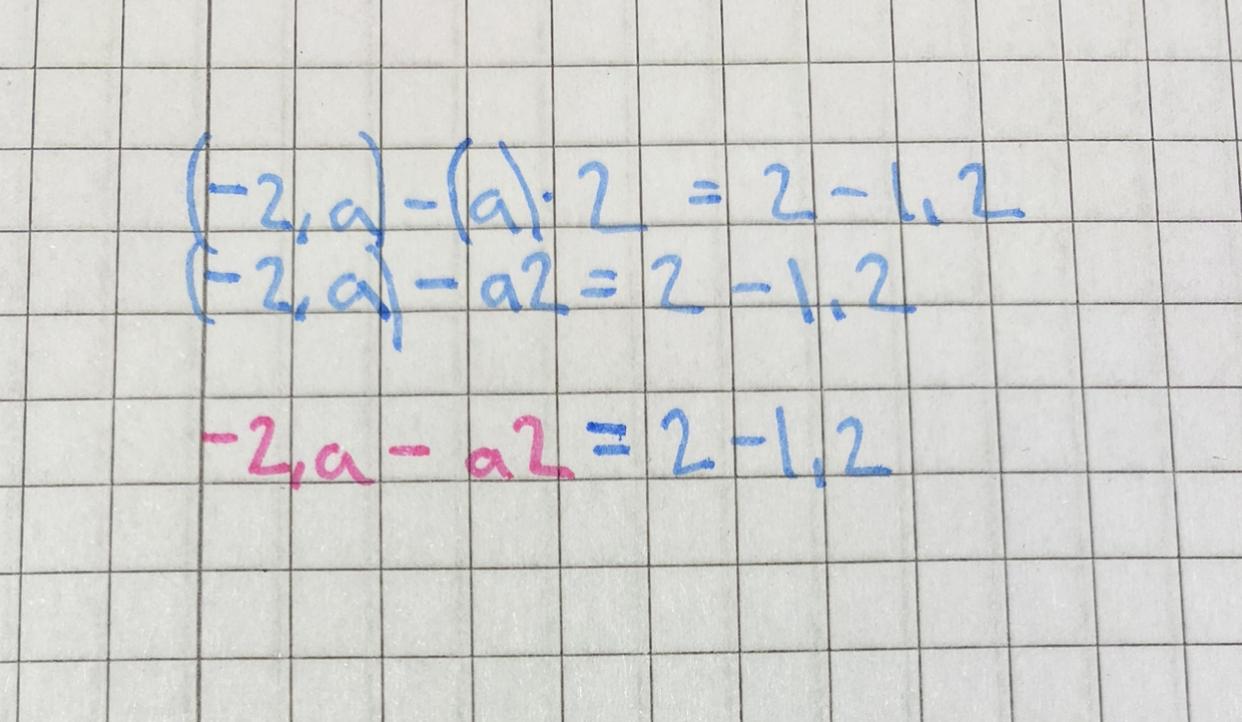 (-2,a) - (a)·2 = 2 - 1,2
(-2,a) - a2 = 2 - 1,2
-2,a - a2 = 2 - 1,2